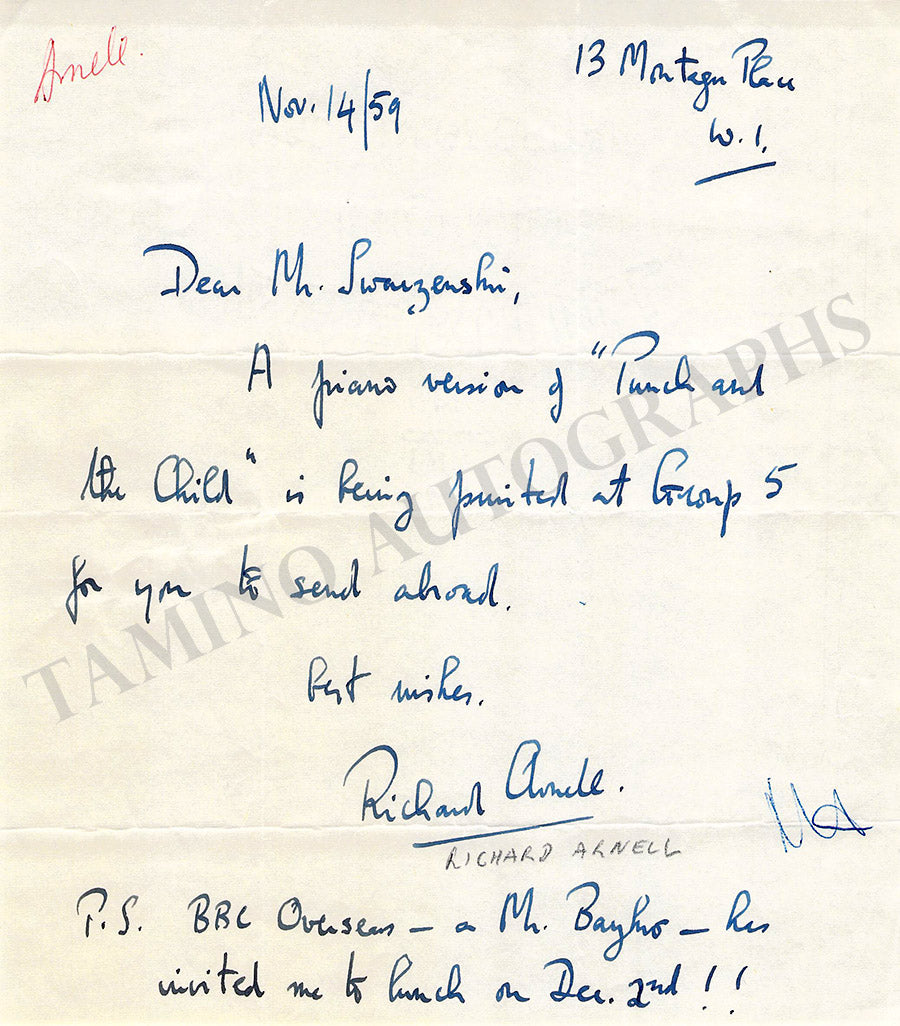 Arnell.
13 Montagu Place
Nov. 14/59
W.1.
Dear Mr. Swarzenski,
A piano version of "Punch and
the Child" is being printed at Group 5
for you to send abroad.
best wishes.
Richard Arnell.
RICHARD ARNELL
P.S. BBC Overseas – a Mr. – has
invited me to lunch on Dec. 2nd!!
TAMINO AUTOGRAPHS